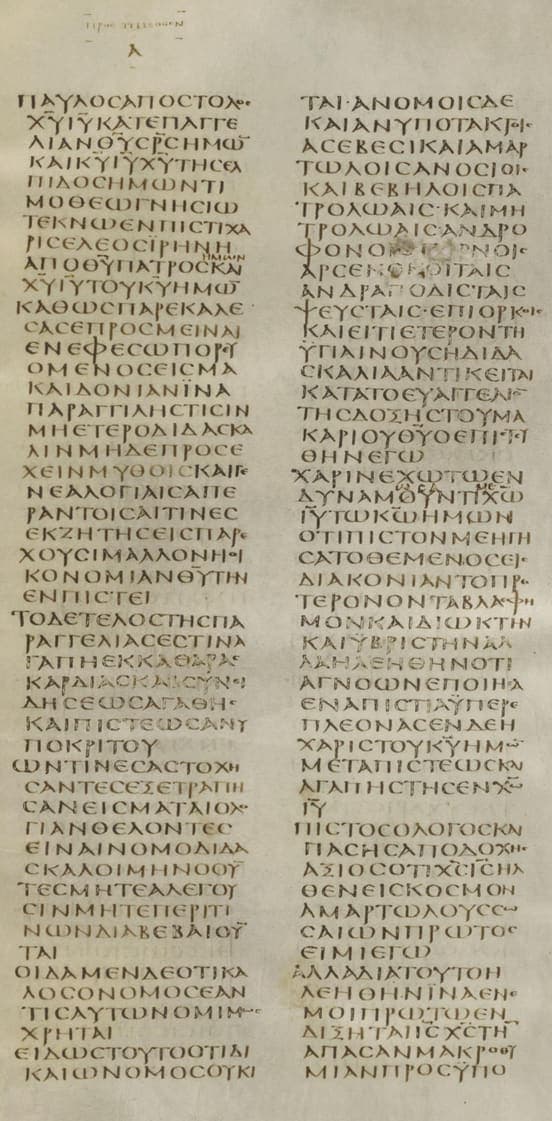 Α
ΠΑΥΛΟϹΑΠΟϹΤΟΛΟϹ
Χ̅Υ̅Ι̅Υ̅ΚΑΤΕΠΑΓΓΕ
ΛΙΑΝΘ̅Υ̅Ϲ̅Ρ̅Ϲ̅ΗΜΩ̅
ΚΑΙΚ̅Υ̅Ι̅Υ̅Χ̅Υ̅ΤΗϹΕΛ
ΠΙΔΟϹΗΜΩΝΤΙ
ΜΟΘΕΩΓΝΗϹΙΩ
ΤΕΚΝΩΕΝΠΙϹΤΙΧΑ
ΡΙϹΕΛΕΟϹΪΡΗΝΗ
ΑΠΟΘ̅Υ̅ΠΑΤΡΟϹΗΜΩΝΚΑΙ
Χ̅Υ̅Ι̅Υ̅ΤΟΥΚ̅Υ̅ΗΜΩ̅
ΚΑΘΩϹΠΑΡΕΚΑΛΕ
ϹΑϹΕΠΡΟϹΜΕΙΝΑΙ
ΕΝΕΦΕϹΩΠΟΡΕΥ
ΟΜΕΝΟϹΕΙϹΜΑ
ΚΑΙΔΟΝΙΑΝΪΝΑ
ΠΑΡΑΓΓΙΛΗϹΤΙϹΙΝ
ΜΗΕΤΕΡΟΔΙΔΑϹΚΑ
ΛΙΝΜΗΔΕΠΡΟϹΕ
ΧΕΙΝΜΥΘΟΙϹΚΑΙΓΕ
ΝΕΑΛΟΓΙΑΙϹΑΠΕ
ΡΑΝΤΟΙϹΑΙΤΙΝΕϹ
ΕΚΖΗΤΗϹΕΙϹΠΑΡΕ
ΧΟΥϹΙΜΑΛΛΟΝΗΟΙ
ΚΟΝΟΜΙΑΝΘ̅Υ̅ΤΗΝ
ΕΝΠΙϹΤΕΙ
ΤΟΔΕΤΕΛΟϹΤΗϹΠΑ
ΡΑΓΓΕΛΙΑϹΕϹΤΙΝΑ
ΓΑΠΗΕΚΚΑΘΑΡΑϹ
ΚΑΡΔΙΑϹΚΑΙϹΥΝΕΙ
ΔΗϹΕΩϹΑΓΑΘΗϹ
ΚΑΙΠΙϹΤΕΩϹΑΝΥ
ΠΟΚΡΙΤΟΥ
ΩΝΤΙΝΕϹΑϹΤΟΧΗ
ϹΑΝΤΕϹΕΞΕΤΡΑΠΗ
ϹΑΝΕΙϹΜΑΤΑΙΟΛΟ
ΓΙΑΝΘΕΛΟΝΤΕϹ
ΕΙΝΑΙΝΟΜΟΔΙΔΑ
ϹΚΑΛΟΙΜΗΝΟΟΥ̅
ΤΕϹΜΗΤΕΑΛΕΓΟΥ
ϹΙΝΜΗΤΕΠΕΡΙΤΙ
ΝΩΝΔΙΑΒΕΒΑΙΟΥ̅
ΤΑΙ
ΟΙΔΑΜΕΝΔΕΟΤΙΚΑ
ΛΟϹΟΝΟΜΟϹΕΑΝ
ΤΙϹΑΥΤΩΝΟΜΙΜΩϹ
ΧΡΗΤΑΙ
ΕΙΔΩϹΤΟΥΤΟΟΤΙΔΙ
ΚΑΙΩΝΟΜΟϹΟΥΚΙ
ΤΑΙ·ΑΝΟΜΟΙϹΔΕ
ΚΑΙΑΝΥΠΟΤΑΚΤΟΙϹ
ΑϹΕΒΕϹΙΚΑΙΑΜΑΡ
ΤΩΛΟΙϹΑΝΟϹΙΟΙϹ
ΚΑΙΒΕΒΗΛΟΙϹΠΑ
ΤΡΟΛΩΑΙϹ·ΚΑΙΜΗ
ΤΡΟΛΩΑΙϹΑΝΔΡΟ
ΦΟΝΟΙϹΠΟΡΝΟΙϹ
ΑΡϹΕΝΟΚΟΙΤΑΙϹ
ΑΝΔΡΑΠΟΔΙϹΤΑΙϹ
ΨΕΥϹΤΑΙϹ·ΕΠΙΟΡΚΟΙϹ
ΚΑΙΕΙΤΙΕΤΕΡΟΝΤΗ
ΫΓΙΑΙΝΟΥϹΗΔΙΔΑ
ϹΚΑΛΙΑΑΝΤΙΚΕΙΤΑΙ
ΚΑΤΑΤΟΕΥΑΓΓΕΛΙΟ̅
ΤΗϹΔΟΞΗϹΤΟΥΜΑ
ΚΑΡΙΟΥΘ̅Υ̅ΟΕΠΙϹΤΕΥ
ΘΗΝΕΓΩ
ΧΑΡΙΝΕΧΩΤΩΕΝ
ΔΥΝΑΜΟΥΝΤΙΧ̅Ω̅
Ι̅Υ̅ΤΩΚ̅Ω̅ΗΜΩΝ
ΟΤΙΠΙϹΤΟΝΜΕΗΓΗ
ϹΑΤΟΘΕΜΕΝΟϹΕΙϹ
ΔΙΑΚΟΝΙΑΝΤΟΠΡΟ
ΤΕΡΟΝΟΝΤΑΒΛΑϹΦΗ
ΜΟΝΚΑΙΔΙΩΚΤΗΝ
ΚΑΙΥΒΡΙϹΤΗΝΑΛ
ΛΑΗΛΕΗΘΗΝΟΤΙ
ΑΓΝΟΩΝΕΠΟΙΗϹΑ
ΕΝΑΠΙϹΤΙΑΫΠΕΡΕ
ΠΛΕΟΝΑϹΕΝΔΕΗ
ΧΑΡΙϹΤΟΥΚ̅Υ̅ΗΜΩ̅
ΜΕΤΑΠΙϹΤΕΩϹΚΑΙ
ΑΓΑΠΗϹΤΗϹΕΝΧ̅Ω̅
Ι̅Υ̅
ΠΙϹΤΟϹΟΛΟΓΟϹΚΑΙ
ΠΑϹΗϹΑΠΟΔΟΧΗϹ
ΑΞΙΟϹΟΤΙΧ̅Ϲ̅Ι̅Ϲ̅ΗΛ
ΘΕΝΕΙϹΚΟϹΜΟΝ
ΑΜΑΡΤΩΛΟΥϹϹΩ
ϹΑΙΩΝΠΡΩΤΟϹ
ΕΙΜΙΕΓΩ
ΑΛΛΑΔΙΑΤΟΥΤΟΗ
ΛΕΗΘΗΝΪΝΑΕΝΕ
ΜΟΙΠΡΩΤΩΕΝ
ΔΙΞΗΤΑΙΙ̅Ϲ̅Χ̅Ϲ̅ΤΗ̅
ΑΠΑϹΑΝΜΑΚΡΟΘΥ
ΜΙΑΝΠΡΟϹΫΠΟ